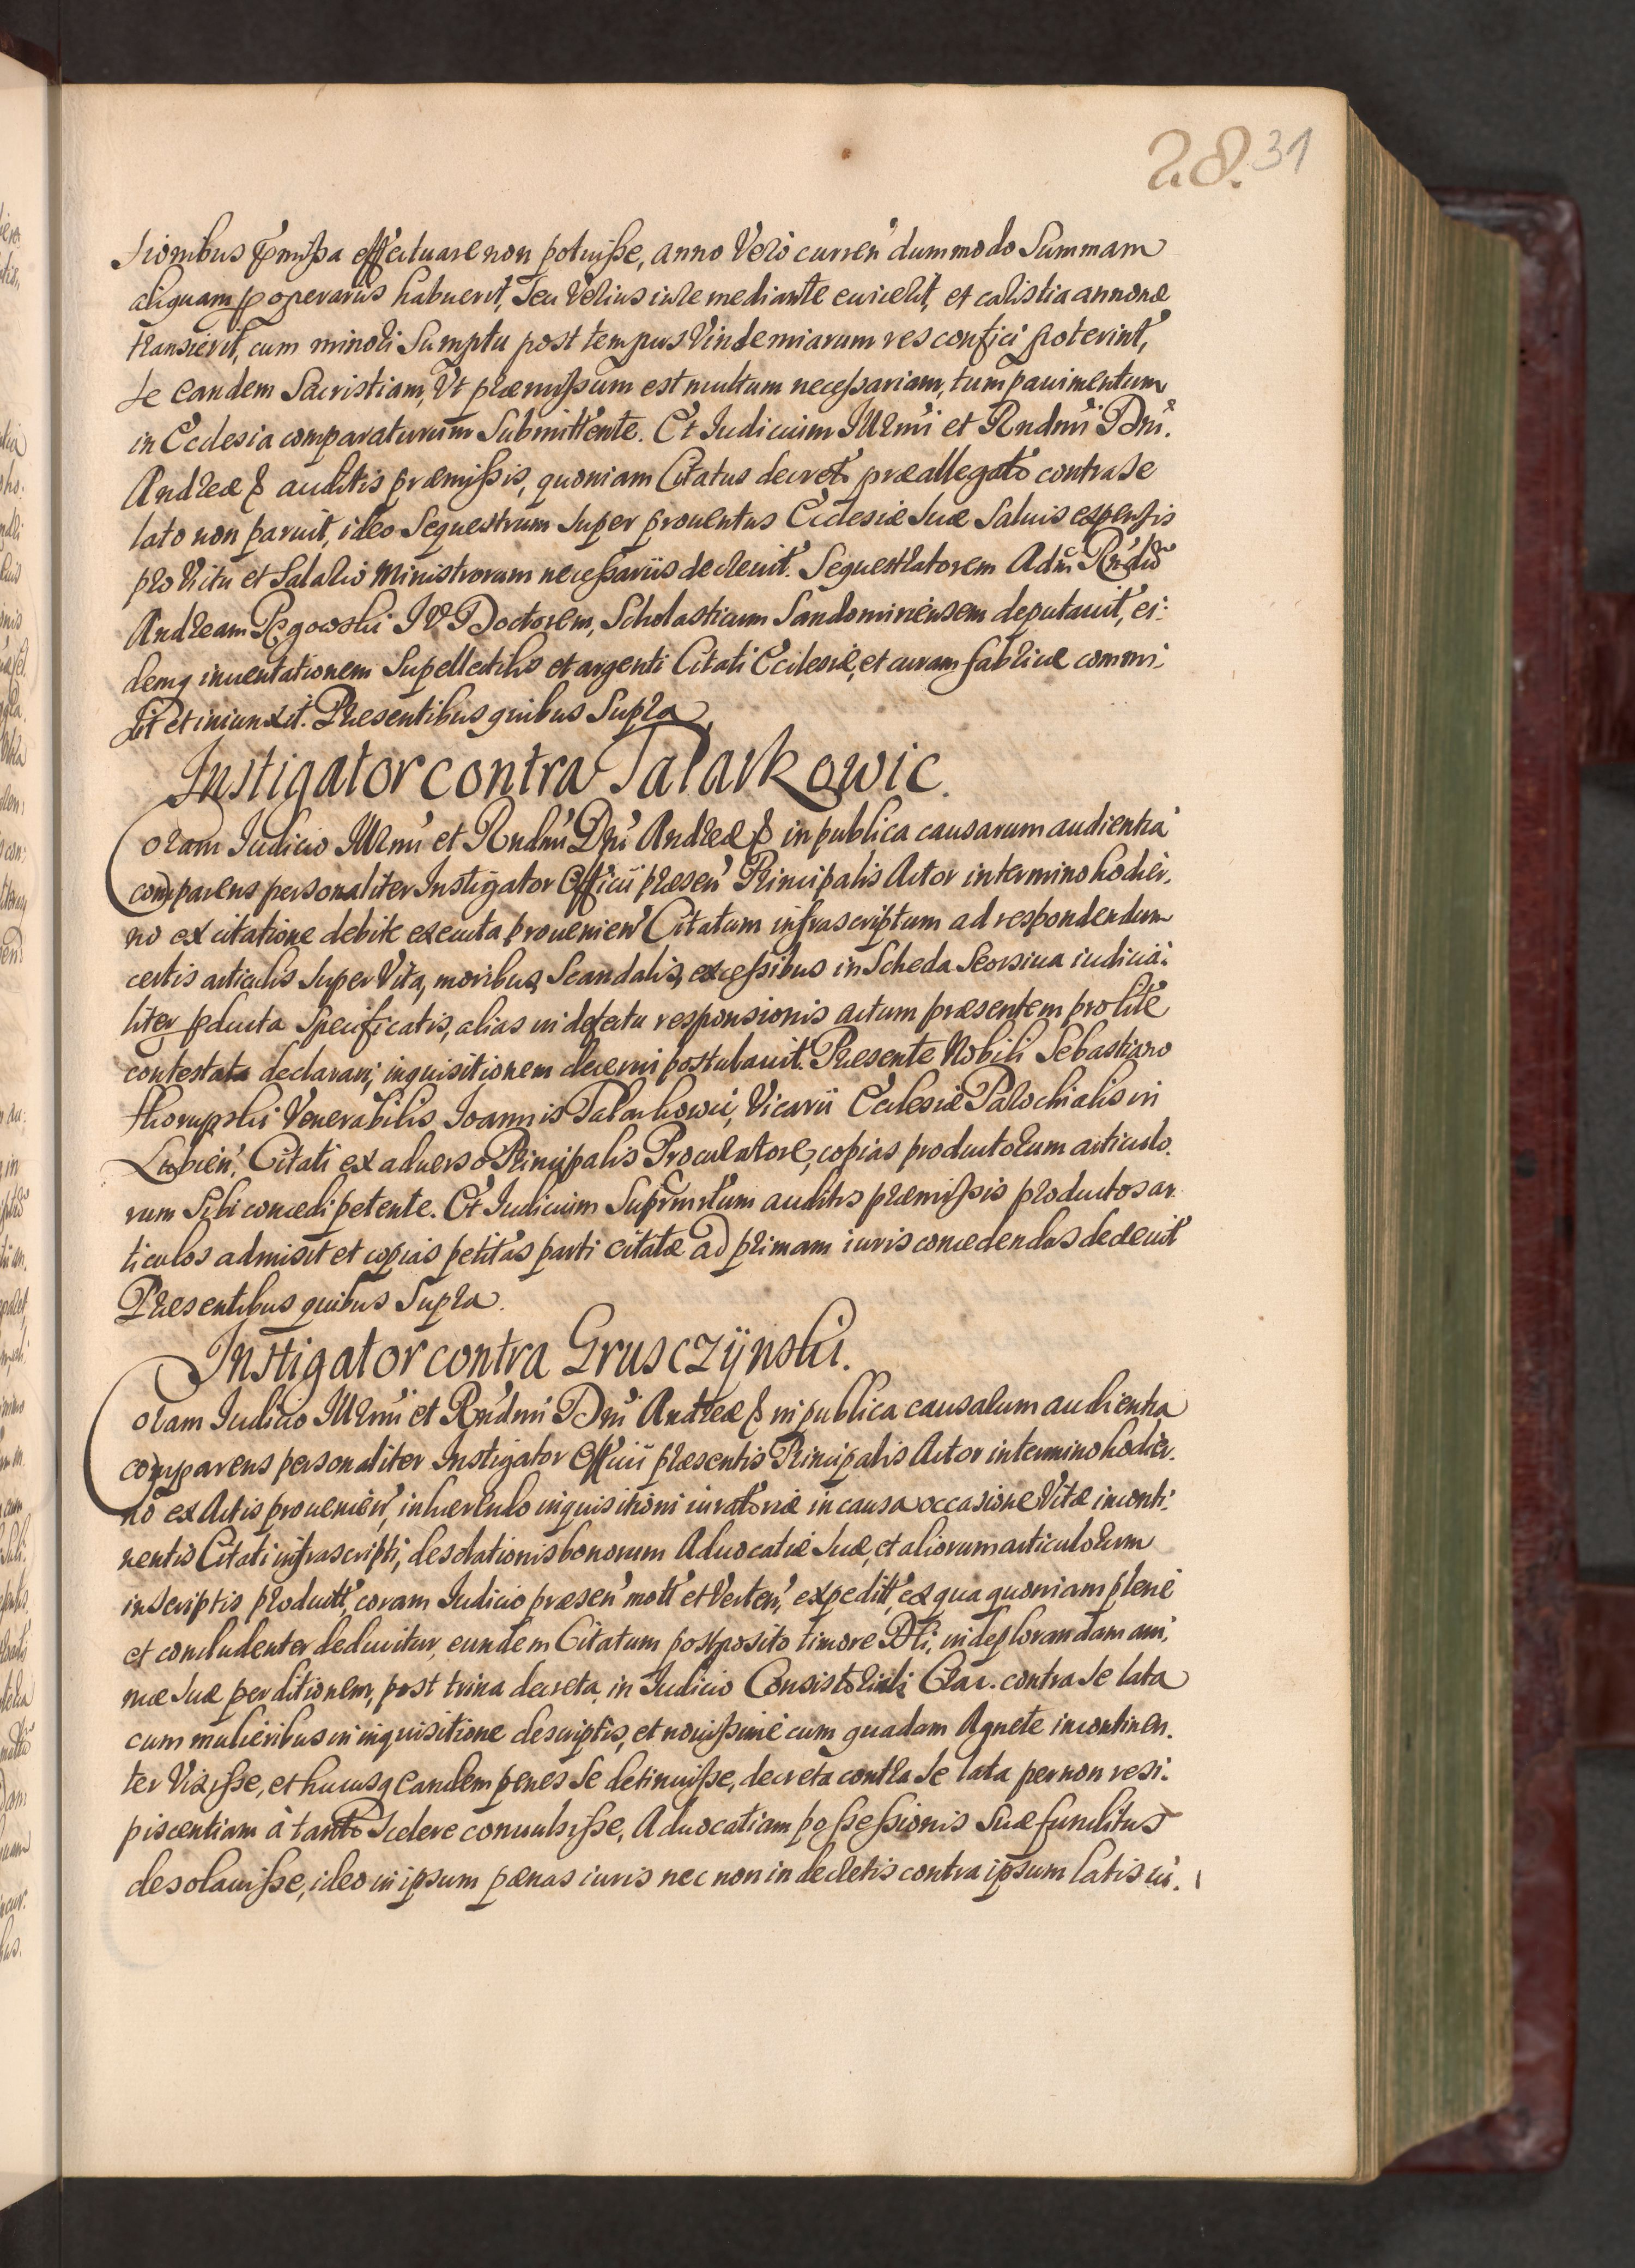 28. 31
sionibus p̃missa effectuare non potuisse, anno Verò curreń dummodo Summam
aliquam p operariis habuerit, seu Verius iure mediante euicerit, et caristia annonæ
transierit, cum minori Sumptu post tempus Vindemiarum res confici poterint,
se eandem Sacristiam, Vt præmissum est multum necessariam, tum pauimentum
in Ecclesia comparaturum Submittente. Et Iudicium Illrmi et Rndmi Dni.
Andreæ & auditis præmissis, quoniam Citatus decreto præallegato contra se
lato non paruit, ideo Sequestrum super prouentus Ecclesiæ suæ Saluis expensis
pro Victu et Salario Ministrorum necessariis decreuit. Sequestratorem Adm Rndũ
Andream Rgowski I V Doctorem, Scholasticum Sandomiriensem deputauit, ei-
demq inuentationem Supellectilis et argenti Citati Ecclesiæ, et curam fabricæ commi-
sit et iniunxit. Præsentibus quibus Supra.
Instigator contra Tatarkowic.
Coram Iudicio Illrmi et Rndmi Dni Andreæ & in publica causarum audientia
comparens personaliter Instigator Officii præsen Principalis Actor in termino hodier-
no ex citatione debite executa prouenień Citatum infrascriptum ad respondendum
certis articulis super Vita, moribus, Scandalis, excessibus in Scheda Seorsiua iudicia-
liter producta Specificatis, alias in defectu responsionis actum præsentem pro lite
contestata declarari, inquisitionem decerni postulauit. Præsente Nobili Sebastiano
Skorupski Venerabilis Ioannis Tatarkowic, Vicarii Ecclesiæ Parochialis in
Lubień, Citati ex aduerso Principalis Procuratore, copias productorum articulo-
rum Sibi concedi petente. Et Iudicium Suprmtum auditis præmissis productos ar-
ticulos admisit et copias petitas parti citatæ ad primam iuris concedendas decreuit
Præsentibus quibus Supra.
Instigator contra Grusczÿnski.
Coram Iudicio Illrmi et Rndmi Dni Andreæ & in publica causarum audientia
comparens personaliter Instigator Officii præsentis Principalis Actor in termino hodier-
no ex Actis prouenień, inhærendo inquisitioni iuratoriæ in causa occasione Vitæ inconti-
nentis Citati infrascripti, desolationis bonorum Aduocatiæ suæ, et aliorum articulorum
in scriptis productt, coram Iudicio præsen mott et Verteń, expeditt, ex qua quoniam plenè
et concludenter deducitur, eundem Citatum postposito timore Dei, in deplorandam ani-
mæ suæ perditionem, post trina decreta in Iudicio Consistoriali Crac. contra se lata
cum mulieribus in inquisitione descriptis, et nouissimè cum quadam Agnete incontinen-
ter Vixisse, et hucusq eandem penes se detinuisse, decreta contra se lata per non resi-
piscentiam à tanto scelere conuulsisse, Aduocatiam possessionis suæ funditus
desolauisse, ideo in ipsum pænas iuris nec non in decretis contra ipsum latis in-